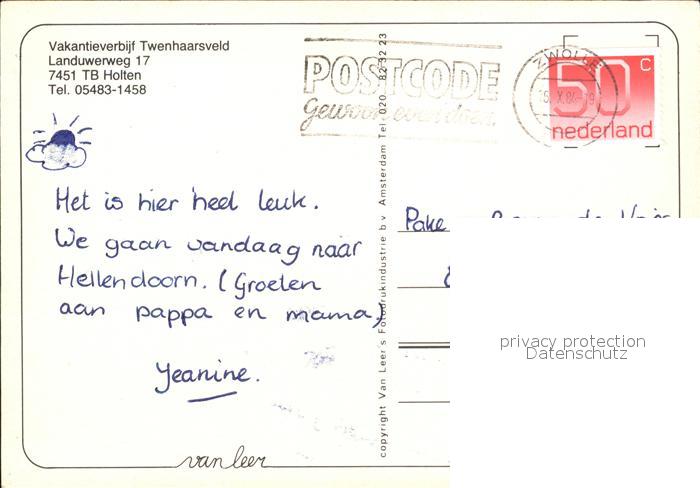 Vakantieverbijf Twenhaarsveld
Landuwerweg 17
7451 TB Holten
Tel. 05483-1458
POSTCODE
gewoon even doen
ZWOLLE
50 c
nederland
Het is hier heel leuk.
We gaan vandaag naar
Hellendoorn. (Groeten
aan pappa en mama)
Jeanine.
van leer
copyright Van Leer's Fotodrukindustrie b.v. Amsterdam Tel. 020 - 82 32 23
Pake
privacy protection
Datenschutz